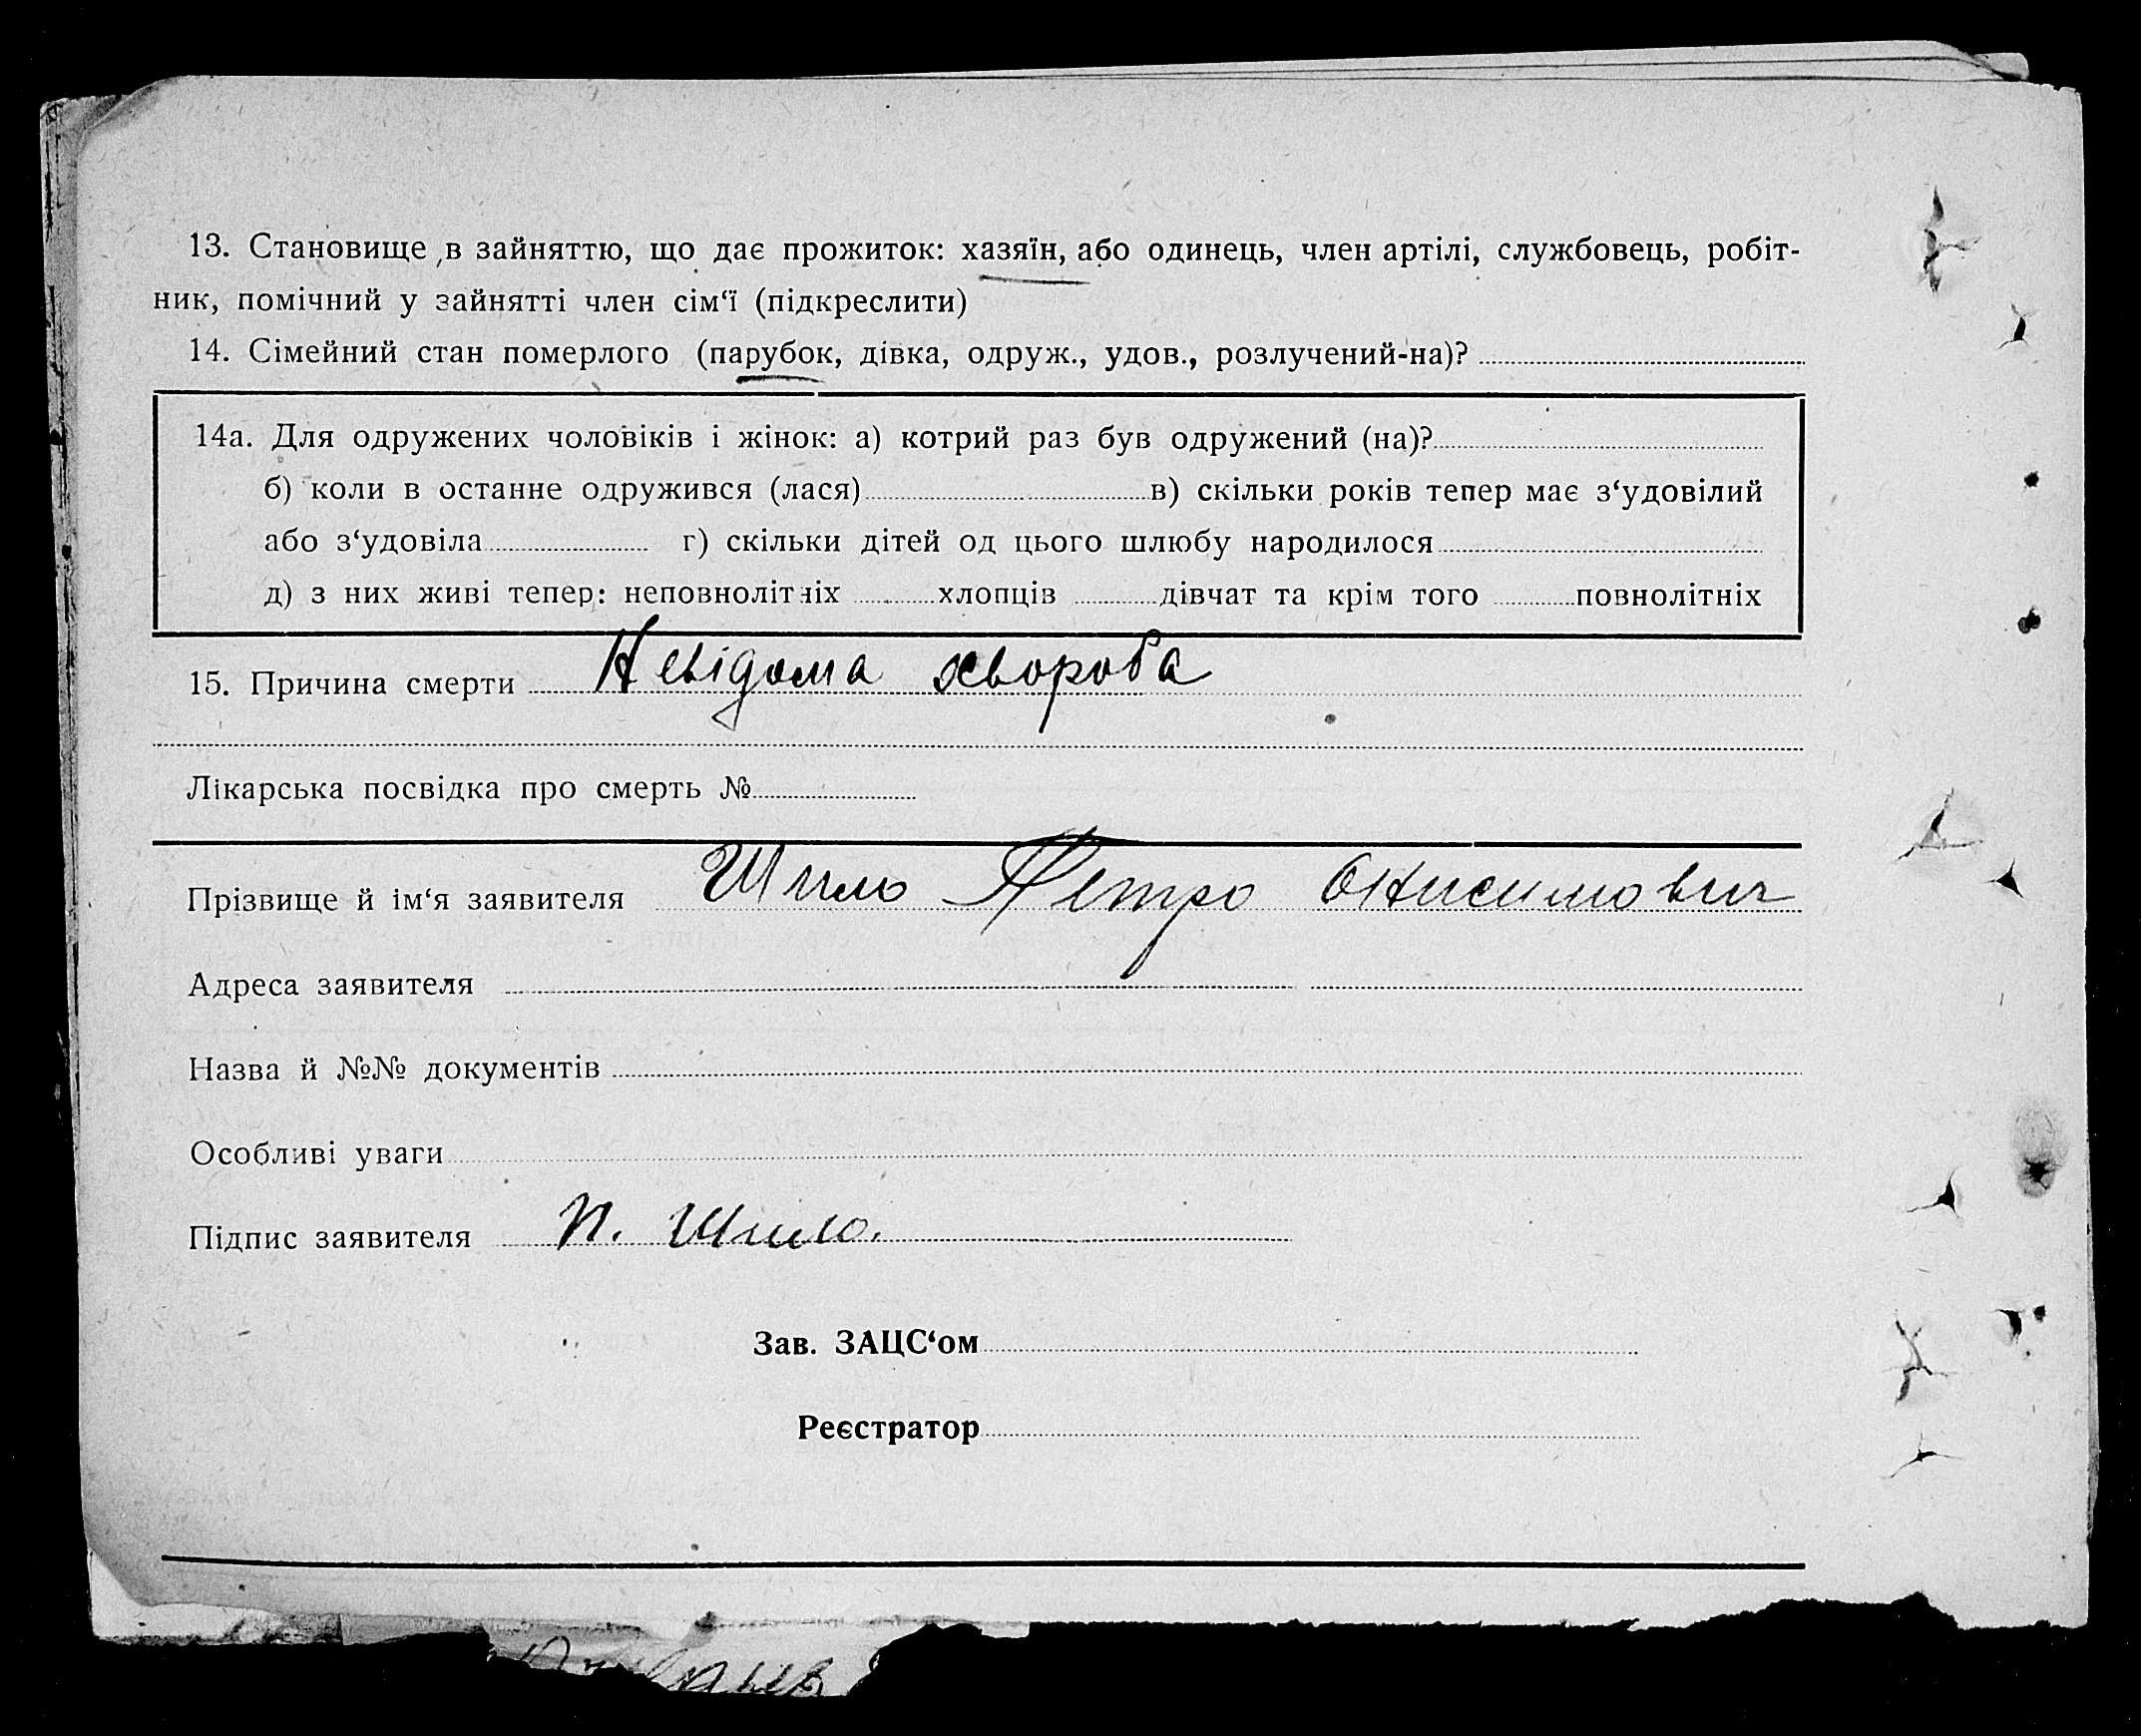 13. Становище в зайняттю, що дає прожиток: хазяїн, або одинець, член артілі, службовець, робіт-
ник, помічний у зайнятті член сім‘ї (підкреслити)
14. Сімейний стан померлого (парубок, дівка, одруж., удов., розлучений-на)?
14а. Для одружених чоловіків і жінок: а) котрий раз був одружений (на)?
б) коли в останне одружився (лася) в) скільки років тепер має з‘удовілий
або з‘удовіла г) скільки дітей од цього шлюбу народилося
д) з них живі тепер: неповнолітніх хлопців дівчат та крім того повнолітніх
15. Причина смерти Невідома хвороба
Лікарська посвідка про смерть №
Прізвище й ім‘я заявителя Шило Петро Онисимович
Адреса заявителя
Назва й №№ документів
Особливі уваги
Підпис заявителя П. Шило.
Зав. ЗАЦС‘ом
Реєстратор